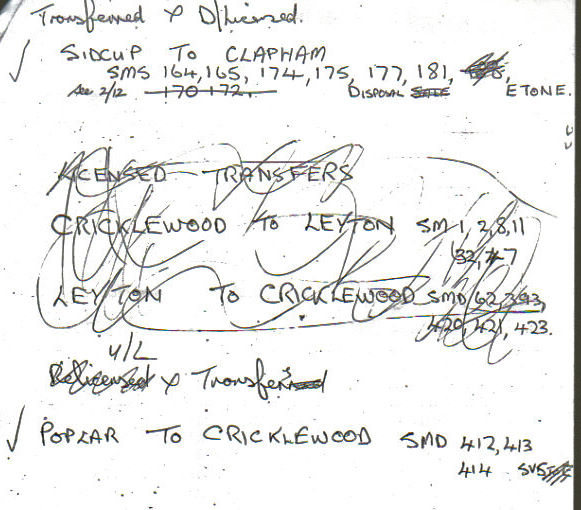 Transferred & D/Licensed.
✓ SIDCUP TO CLAPHAM
SMS 164, 165, 174, 175, 177, 181,
2/12 170 172. DISPOSAL ETONE.
LICENSED TRANSFERS
CRICKLEWOOD TO LEYTON SM 1, 2, 8, 11
32, 47
LEYTON TO CRICKLEWOOD SMD 62, 393,
420, 421, 423.
U/L
Relicensed & Transfers
✓ POPLAR TO CRICKLEWOOD SMD 412, 413
414 SVS